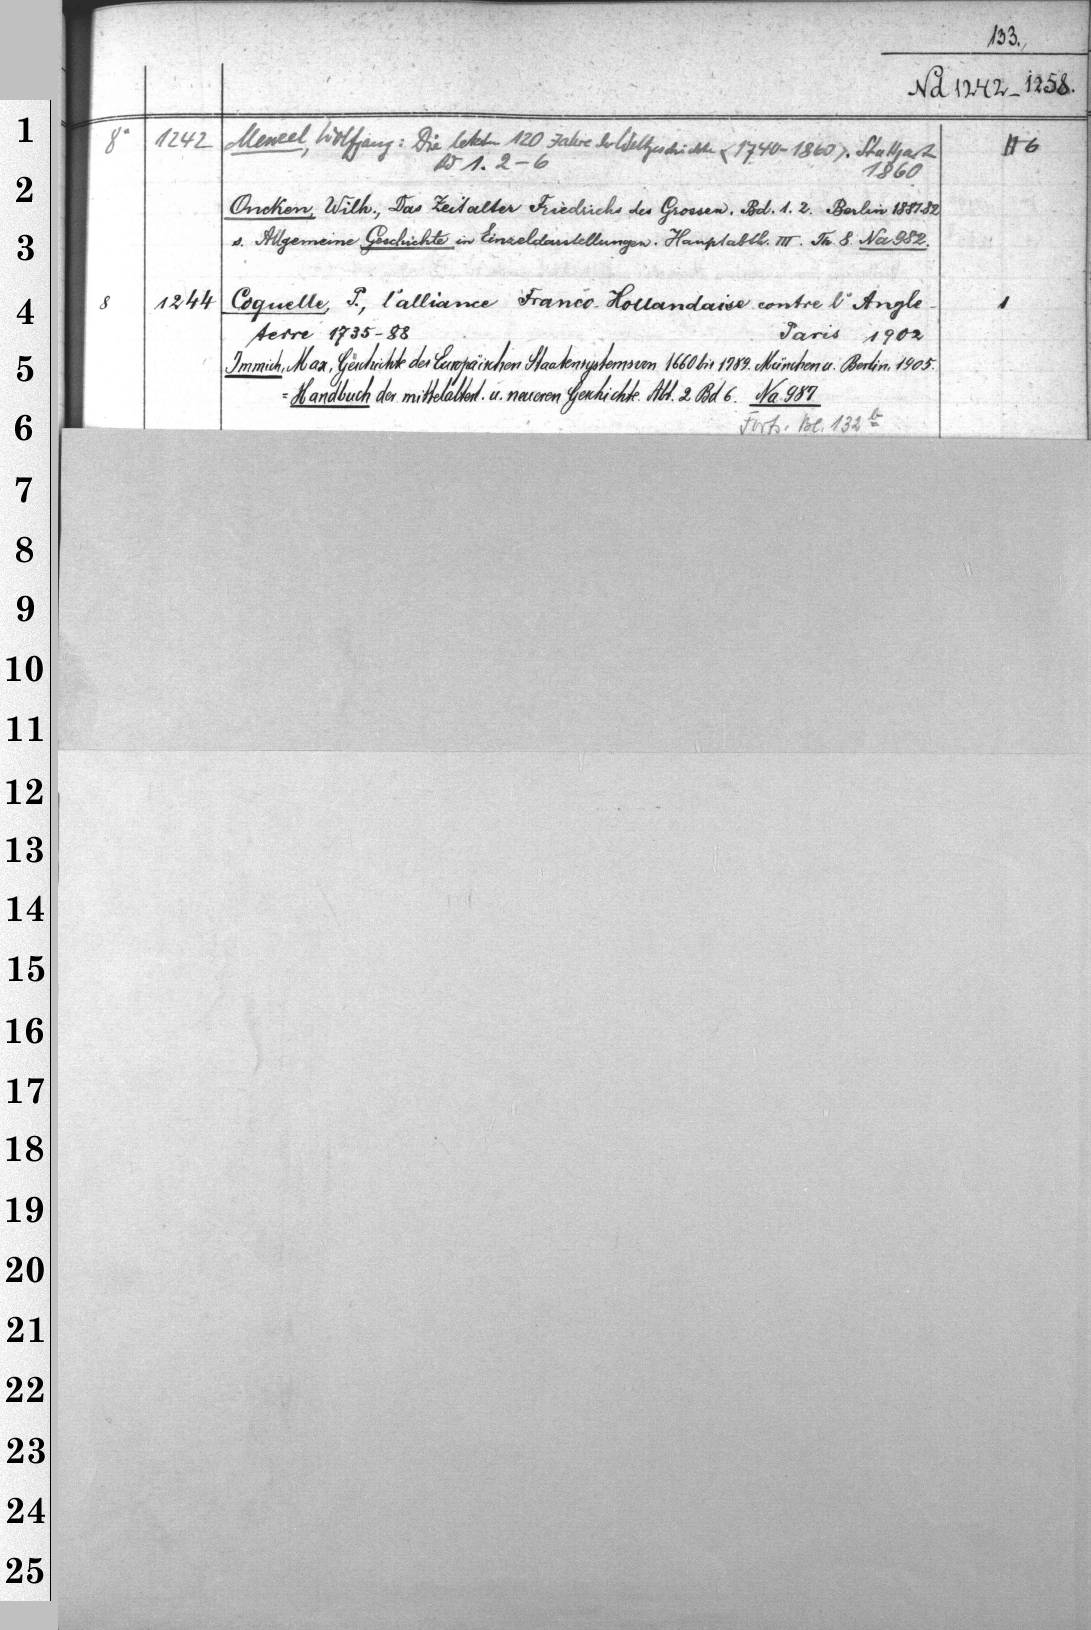 133.
Nd 1242-1258.
8° 1242 Menzel, Wolfgang: Die letzten 120 Jahre der Weltgeschichte (1740-1860). Stuttgart 6
Bd 1. 2-6 1860
Oncken, Wilh., Das Zeitalter Friedrichs des Grossen. Bd. 1. 2. Berlin 1881-82
s. Allgemeine Geschichte in Einzeldarstellungen. Hauptabth. III. Th. 8. Na 982.
8 1244 Coquelle, P., l'alliance Franco-Hollandaise contre l'Angle- 1
terre 1735-88 Paris 1902
Immich, Max, Geschichte des Europäischen Staatensystems von 1660 bis 1789. München u. Berlin. 1905.
= Handbuch der mittelalterl. u. neueren Geschichte. Abt. 2 Bd 6. Na 987
Forts. Bl. 132 b
1
2
3
4
5
6
7
8
9
10
11
12
13
14
15
16
17
18
19
20
21
22
23
24
25